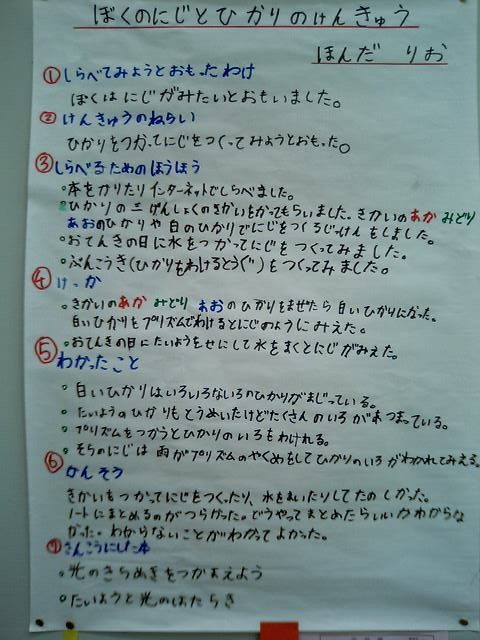 ぼくのにじとひかりのけんきゅう
ほんだ りお
①しらべてみようとおもったわけ
ぼくはにじがみたいとおもいました。
②けんきゅうのねらい
ひかりをつかってにじをつくってみようとおもった。
③しらべるためのほうほう
・本をかりたりインターネットでしらべました。
・ひかりの三げんしょくのきかいをかってもらいました。きかいのあかみどり
あおのひかりや白のひかりでにじをつくるじっけんをしました。
・おてんきの日に水をつかってにじをつくってみました。
・ぶんこうき(ひかりをわけるどうぐ)をつくってみました。
④けっか
・きかいのあかみどりあおのひかりをまぜたら白いひかりになった。
白いひかりをプリズムでわけるとにじのようにみえた。
・おてんきの日にたいようをせにして水をまくとにじがみえた。
⑤わかったこと
・白いひかりはいろいろないろのひかりがまじっている。
・たいようのひかりもとうめいだけどたくさんのいろがあつまっている。
・プリズムをつかうとひかりのいろをわけれる。
・そらのにじは雨がプリズムのやくめをしてひかりのいろがわかれてみえる。
⑥かんそう
きかいをつかってにじをつくったり、水をまいたりしてたのしかった。
ノートにまとめるのがつらかった。どうやってまとめたらいいかわからな
かった。わからないことがわかってよかった。
⑦さんこうにした本
・光のきらめきをつかまえよう
・たいようと光のはたらき